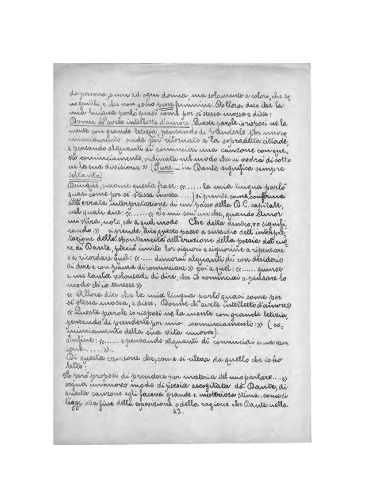 da persona, e non ad ogni donna, ma solamente a coloro, che so
no gentili, e che non sono pure femmine. Allora dico che la
mia lingua parlò quasi come per sé stessa mossa e disse:
Donne ch'avete intelletto d'amore. Queste parole io riposi ne la
mente con grande letizia, pensando di prenderle per mio co
minciamento: onde poi ritornato a la sopradetta cittade,
e pensando alquanti dì, cominciai una canzone con que
sto cominciamento, ordinata nel modo che si vedrà di sotto
ne la sua divisione. » (Pure in Dante significa sempre
soltanto)
Dunque, questa frase: «...... la mia lingua parlò
quasi come per sé stessa mossa ...... » si prende come conferma
all'errata interpretazione di un passo della D.C. capitale,
nel quale dice: «...... e io mi son un che, quando Amor
mi spira, noto, ed a quel modo Che detta dentro, vo signifi
cando. » si prende questo passo a sussidio dell'interpre
tazione dello spontaneo dell'eruzione della poesia dell'cuo
re di Dante, perciò invito loro signori e signorine a ripensare
e a ricordare qui: «..... dimorai alquanti dì con desiderio
di dire e con paura di cominciare » poi a quel: «...... giunse
a me tanta volontade di dire, che io cominciai a pensare lo
modo ch'io tenesse »
« Allora dico che la mia lingua parlò quasi come per
sé stessa mossa, e disse: Donne ch'avete intelletto d'amore »
« Queste parole io riposi ne la mente con grande letizia,
pensando di prenderle per mio cominciamento: » (co=
minciamento della sua vita nuova).
Infine: «...... e pensando alquanti dì cominciai una can
zone........ ».
Di questa canzone che, come si rileva da quello che io ho
letto:
« e però proposi di prendere per materia del mio parlare ..... »
segna un nuovo modo di poesia escogitata da Dante, di
questa canzone egli faceva grande e misteriosa stima, come si
legge alla fine della esposizione o della ragione che Dante nella
23.